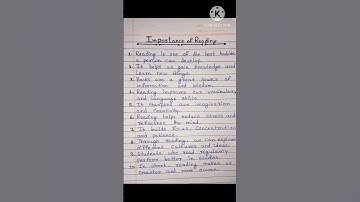 Importance of Reading
1. Reading is one of the best habits
a person can develop.
2. It helps us gain knowledge and
learn new things.
3. Books are a great source of
information and wisdom.
4. Reading improves our vocabulary
and language skills.
5. It sharpens our imagination
and creativity.
6. Reading helps reduce stress and
refreshes the mind.
7. It builds focus, concentration
and patience.
8. Through reading, we can explore
different cultures and ideas.
9. Students who read regularly
perform better in studies.
10. In short, reading makes us
smarter and more aware.